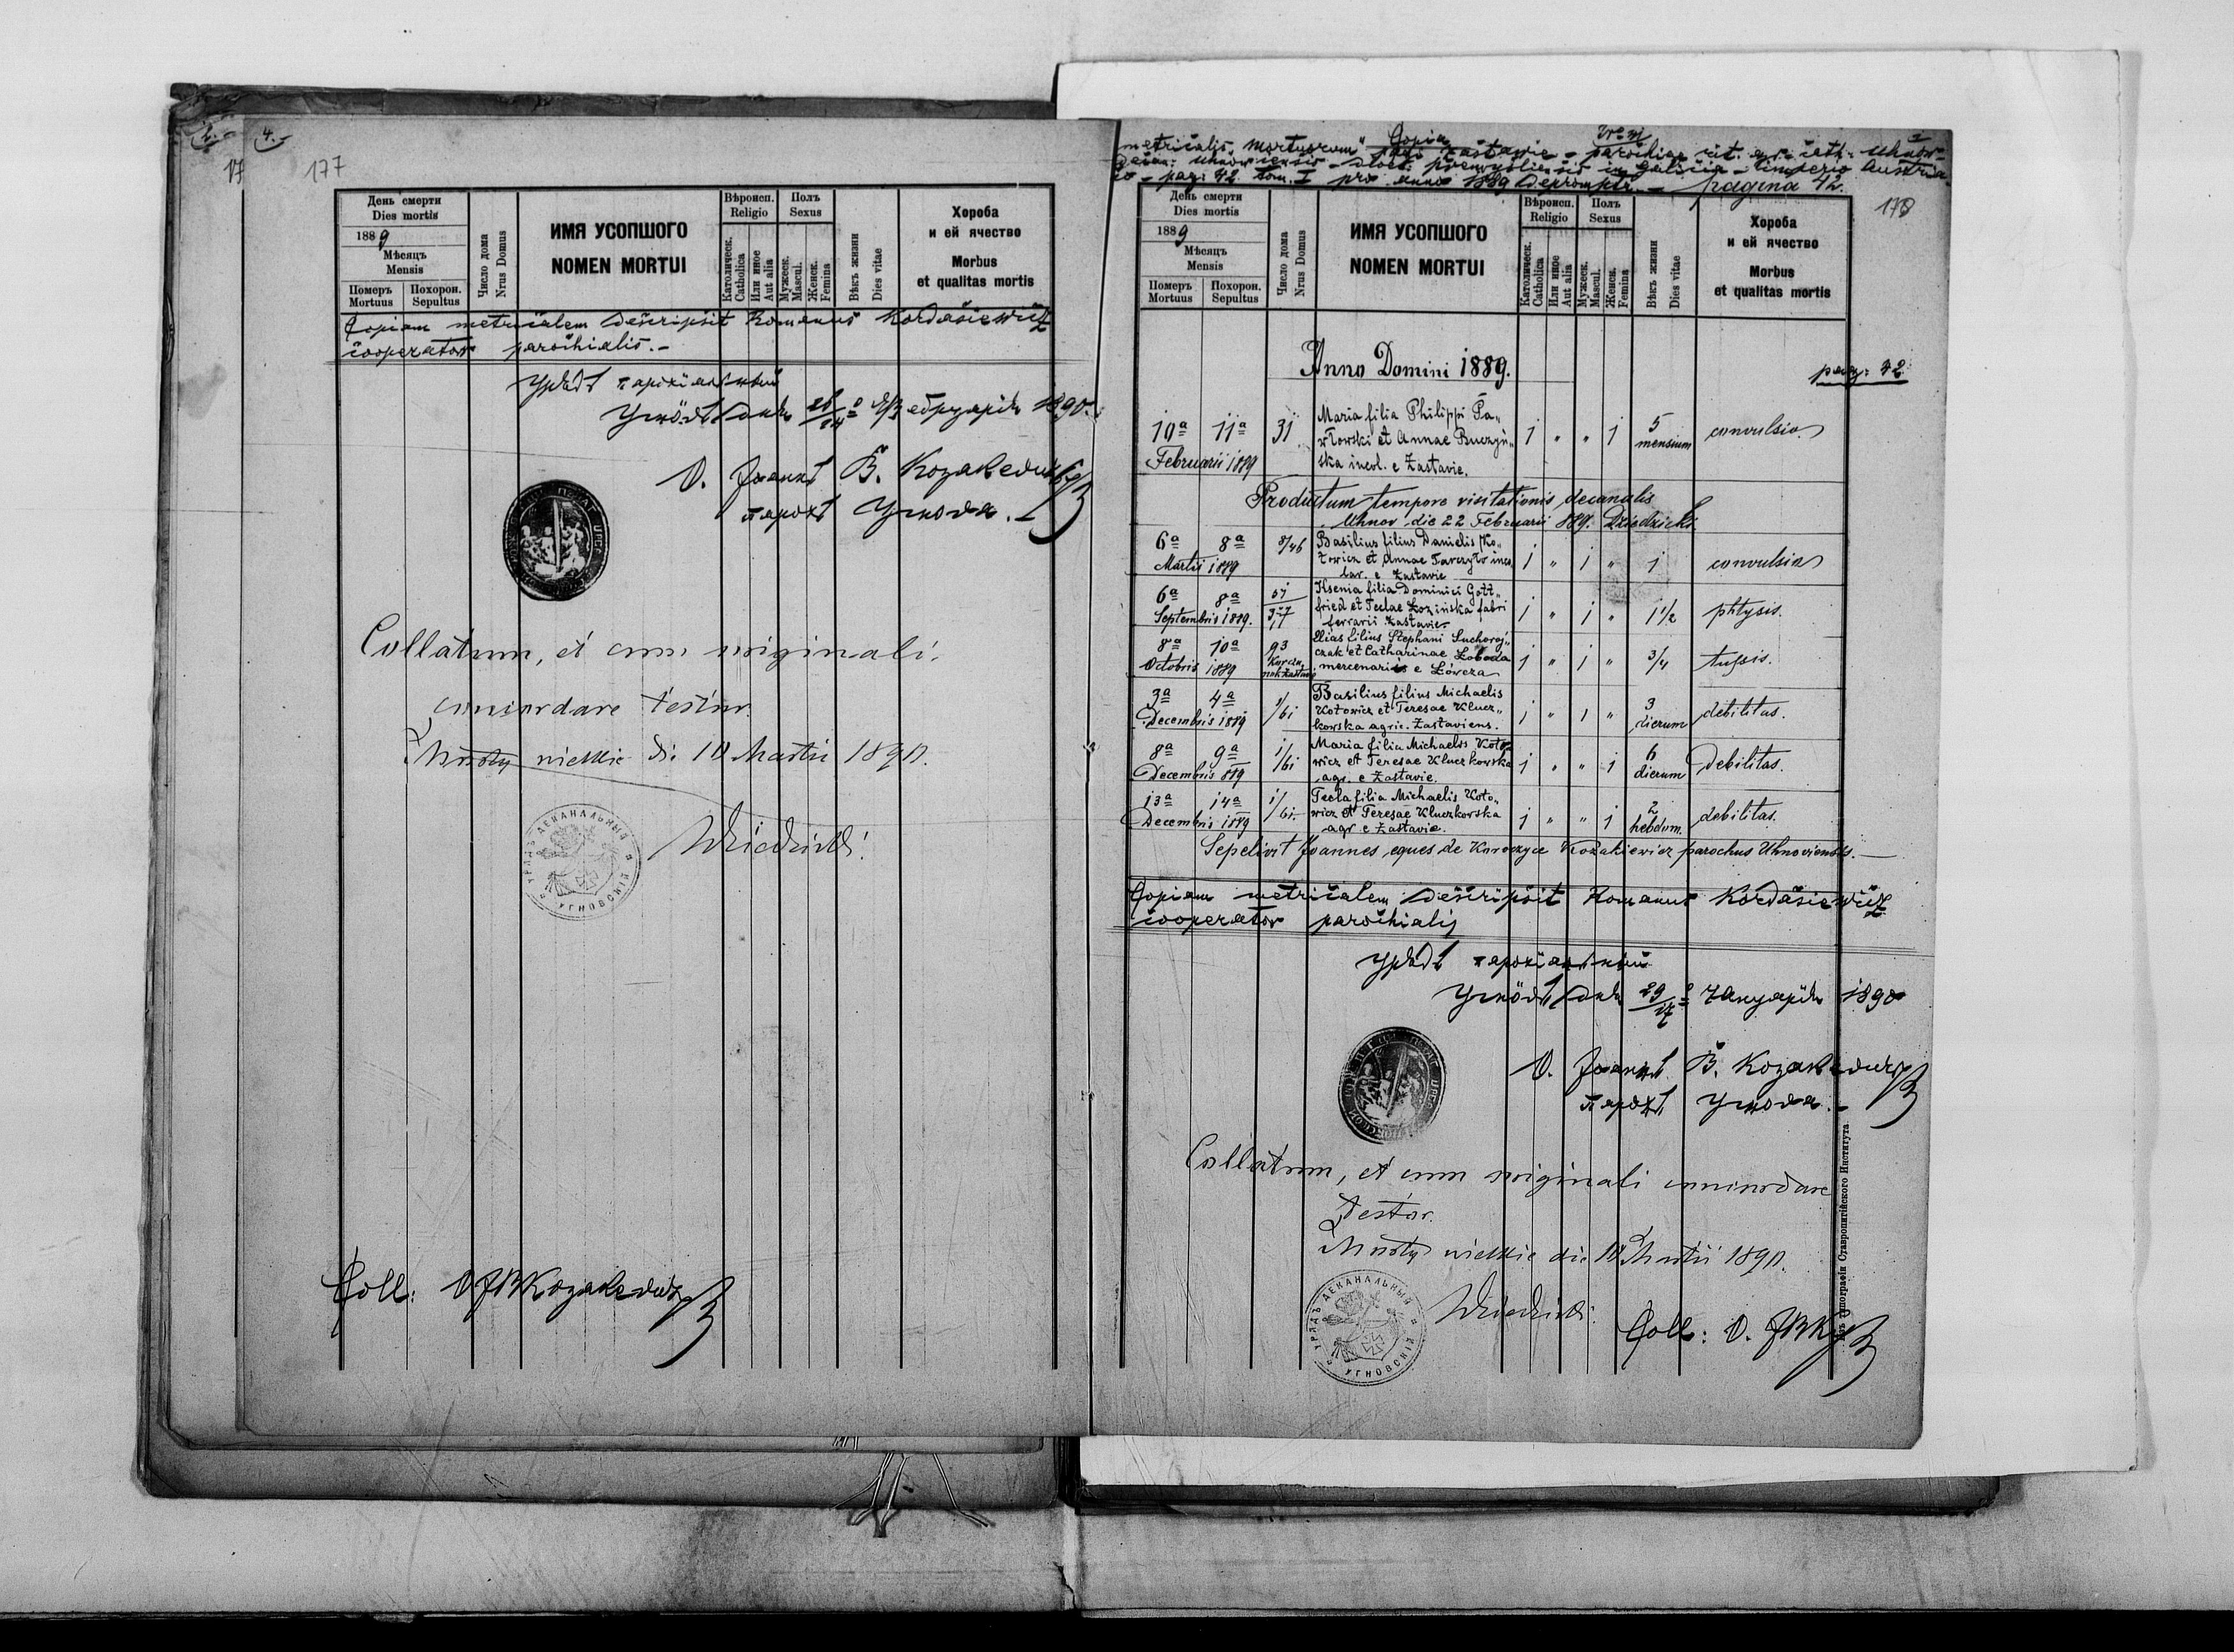 2.-
4.-
17
177
День смерти
Dies mortis
1889
Мѣсяцъ
Mensis
Померъ
Mortuus
Похорон.
Sepultus
Число дома
Nrus Domus
ИМЯ УСОПШОГО
NOMEN MORTUI
Вѣроисп.
Religio
Католическ.
Catholica
Или иное
Aut alia
Полъ
Sexus
Мужеск.
Mascul.
Женск.
Femina
Вѣкъ жизни
Dies vitae
Хороба
и ей ячество
Morbus
et qualitas mortis
Copiam metricalem descripsit Romanus Kordasiewicz
cooperator parochialis.-
Урядъ парохіальный
Угнôвъ дня 1890.
О. Іоаннъ В. Козакевичъ
парохъ Угнова.-
Collatum, et cum originali
concordare testor.
Mosty wielkie die 10 Martii 1890.
Dziedzicki.
УРЯДЪ ДЕКАНАЛЬНЫЙ
УГНОВСКІЙ
Coll: О ІВКозакевичъ
Copia
metricalis mortuorum pagi Zastavie - parochiae rit. gr. cath. Uhnow
decan: Uhnoviensis - dioec. Premysliensis in Galicia - Imperio Austria
pag: 42 tom. I pro anno 1889 depromptr. - pagina 42.
178
День смерти
Dies mortis
1889
Мѣсяцъ
Mensis
Померъ
Mortuus
Похорон.
Sepultus
Число дома
Nrus Domus
ИМЯ УСОПШОГО
NOMEN MORTUI
Вѣроисп.
Religio
Католическ.
Catholica
Или иное
Aut alia
Полъ
Sexus
Мужеск.
Mascul.
Женск.
Femina
Вѣкъ жизни
Dies vitae
Хороба
и ей ячество
Morbus
et qualitas mortis
Anno Domini 1889.
pag: 42
10a 11a 31 Maria filia Philippi Pa„ 1 „ „ 1 5 convulsio
Februarii 1889 włowski et Annae Buczyń„ mensium
ska incol. e Zastavie.
Productum tempore visitationis decanalis
Uhnov die 22 Februarii 889. Dziedzicki
6a 8a 8/46 Basilius filius Danielis Ko„ 1 „ 1 „ 1 convulsio
Martii 1889 towicz et Annae inco
lar. e Zastavie
6a 8a 57 Ksenia filia Dominici Gott„ 1 „ 1 „ 1 1/2 phtysis.
Septembris 1889. fried et Teclae Łozińska fabri
ferrarii Zastavie.
8a 10a 93 Elias filius Stephani Suchoroj„ 1 „ 1 „ 3/4 tussis.
Octobris 1889 czak et Catharinae Łoboda
mercenariis e Łówcza
3a 4a 1/61 Basilius filius Michaelis 1 „ 1 „ 3 debilitas.
Decembris 1889 Kotowicz et Teresae Klucz„ dierum
kowska agric. Zastaviens.
8a 9a 1/61 Maria filia Michaelis Koto„ 1 „ „ 1 6 debilitas.
Decembris 889 wicz et Teresae Kluczkowska dierum
agr. e Zastavie.
13a 14a 1/61 Tecla filia Michaelis Koto„ 1 „ „ 1 2 debilitas.
Decembris 1889 wicz et Teresae Kluczkowska hebdom.
agr e Zastavie.
Sepelivit Joannes eques de Koroczyce Kozakiewicz parochus Uhnoviensis.-
Copiam metricalem descripsit Romanus Kordasiewicz
cooperator parochialis
Урядъ парохіальный
Угнôвъ дня 29/17 Януарія 1890
О. Іоаннъ В. Козакевичъ
парохъ Угнова.-
Collatum, et cum originali concordare
testor.
Mosty wielkie die 10 Martii 1890.
Dziedzicki.
УРЯДЪ ДЕКАНАЛЬНЫЙ
УГНОВСКІЙ
Coll: О. ІВК
Типографіи Ставропигійского Института